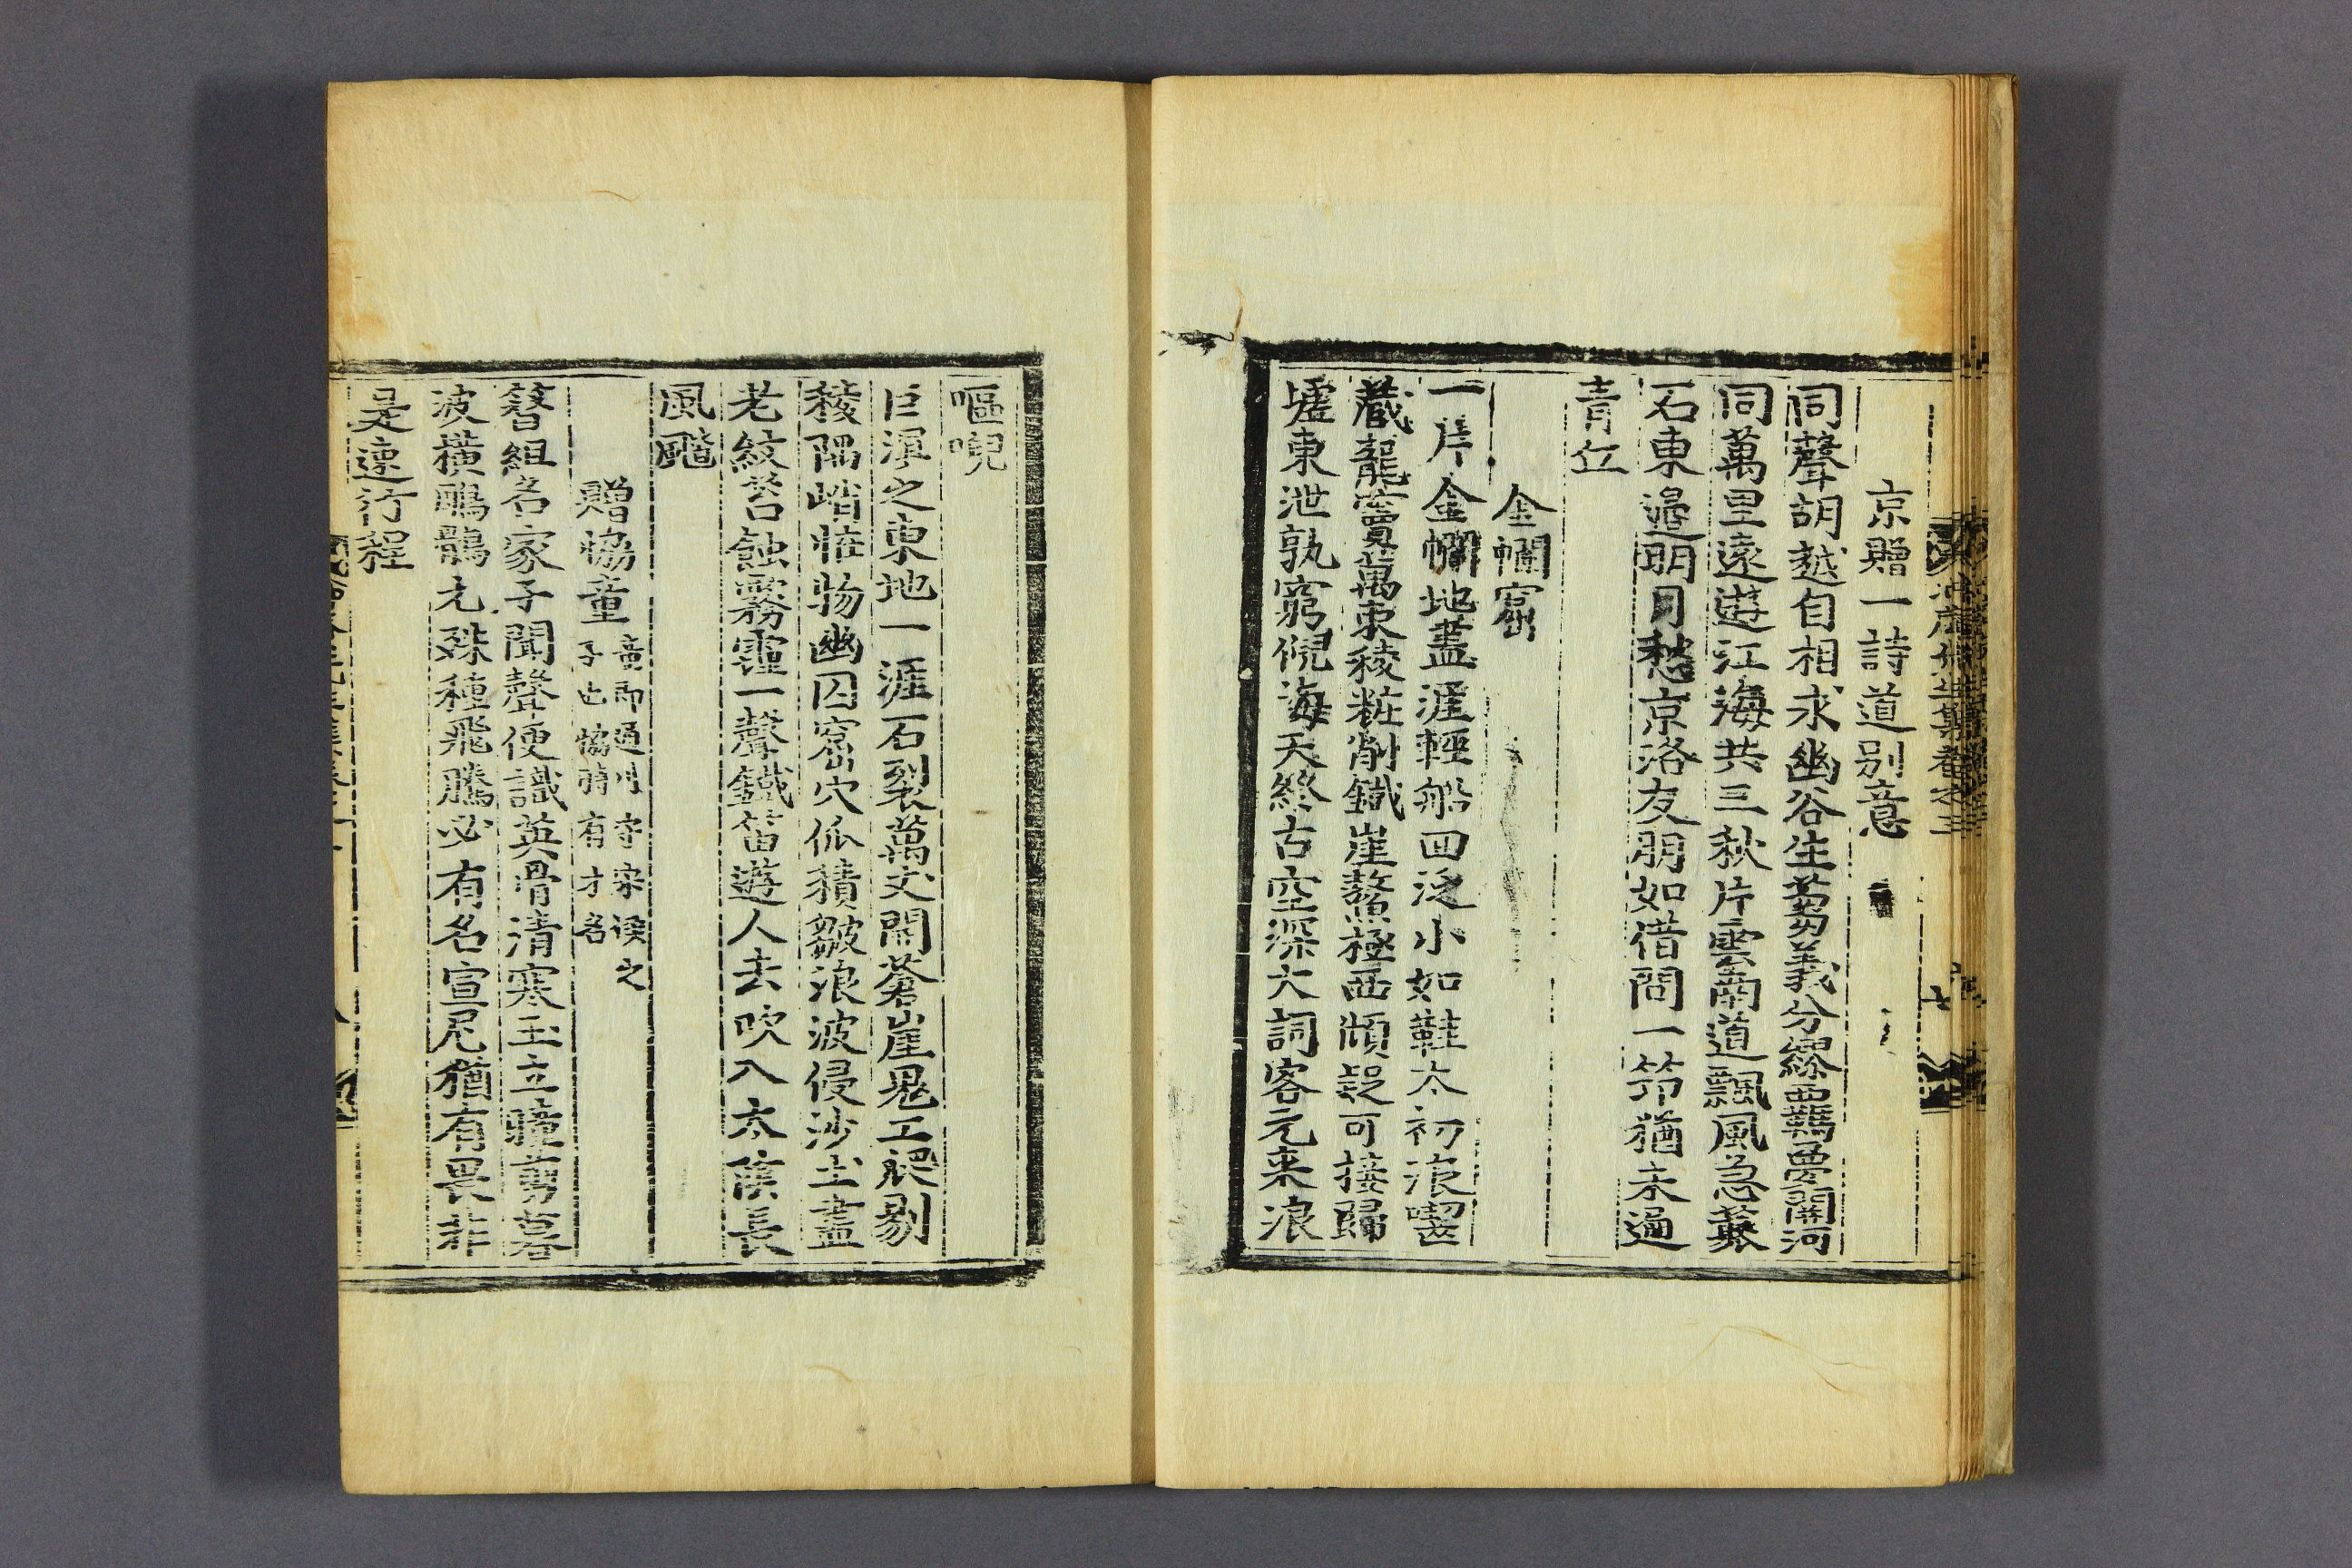 京贈一詩道別意
同聲胡越自相求幽谷生芻義分繆西羈夢關河
同萬里遠遊江海共三秋片雲南道飄風急叢
石東邊明月愁京洛友朋如借問一笻猶未過
靑丘
金幱窟
一片金幱地盡涯輕船回泛小如鞋太初浪囓
藏龍竇萬束稜粧削鐵崖鰲極西傾疑可接歸
墟東泄孰窮倪海天終古空深大詞客元來浪
嘔唲
巨溟之東地一涯石裂萬丈開蒼崖鬼工爬剔
稜隅峭恠物幽囚窟穴依積皺浪波侵沙土盡
老紋苔蝕霧霾一聲鐵笛遊人去吹入太陰長
風颸
贈恊童童卽通川守宋侯之
子也恊時有才名
簪組名家子聞聲便識英骨清寒玉立瞳剪暮
波橫鵰鶚元殊種飛騰必有名宣尼猶有畏非
是遠行程